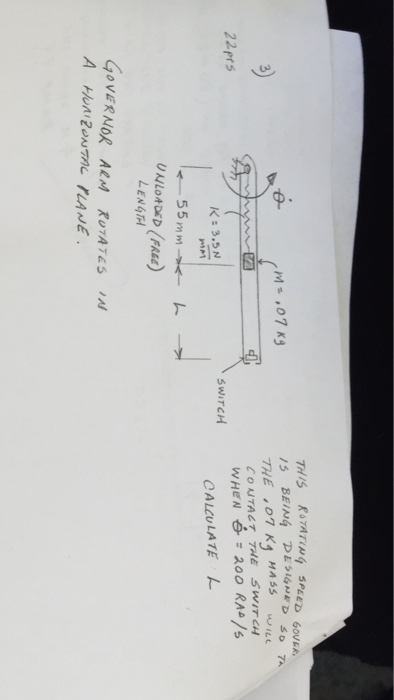 3)
22pts
THIS ROTATING SPEED GOVER
IS BEING DESIGNED SO TH
THE .07 Kg MASS WILL
CONTACT THE SWITCH
WHEN θ̇ = 200 RAD/S
CALCULATE L
θ̇
M = .07 Kg
K = 3.5 N/MM
SWITCH
55mm
L
UNLOADED (FREE)
LENGTH
GOVERNOR ARM ROTATES IN
A HORIZONTAL PLANE.